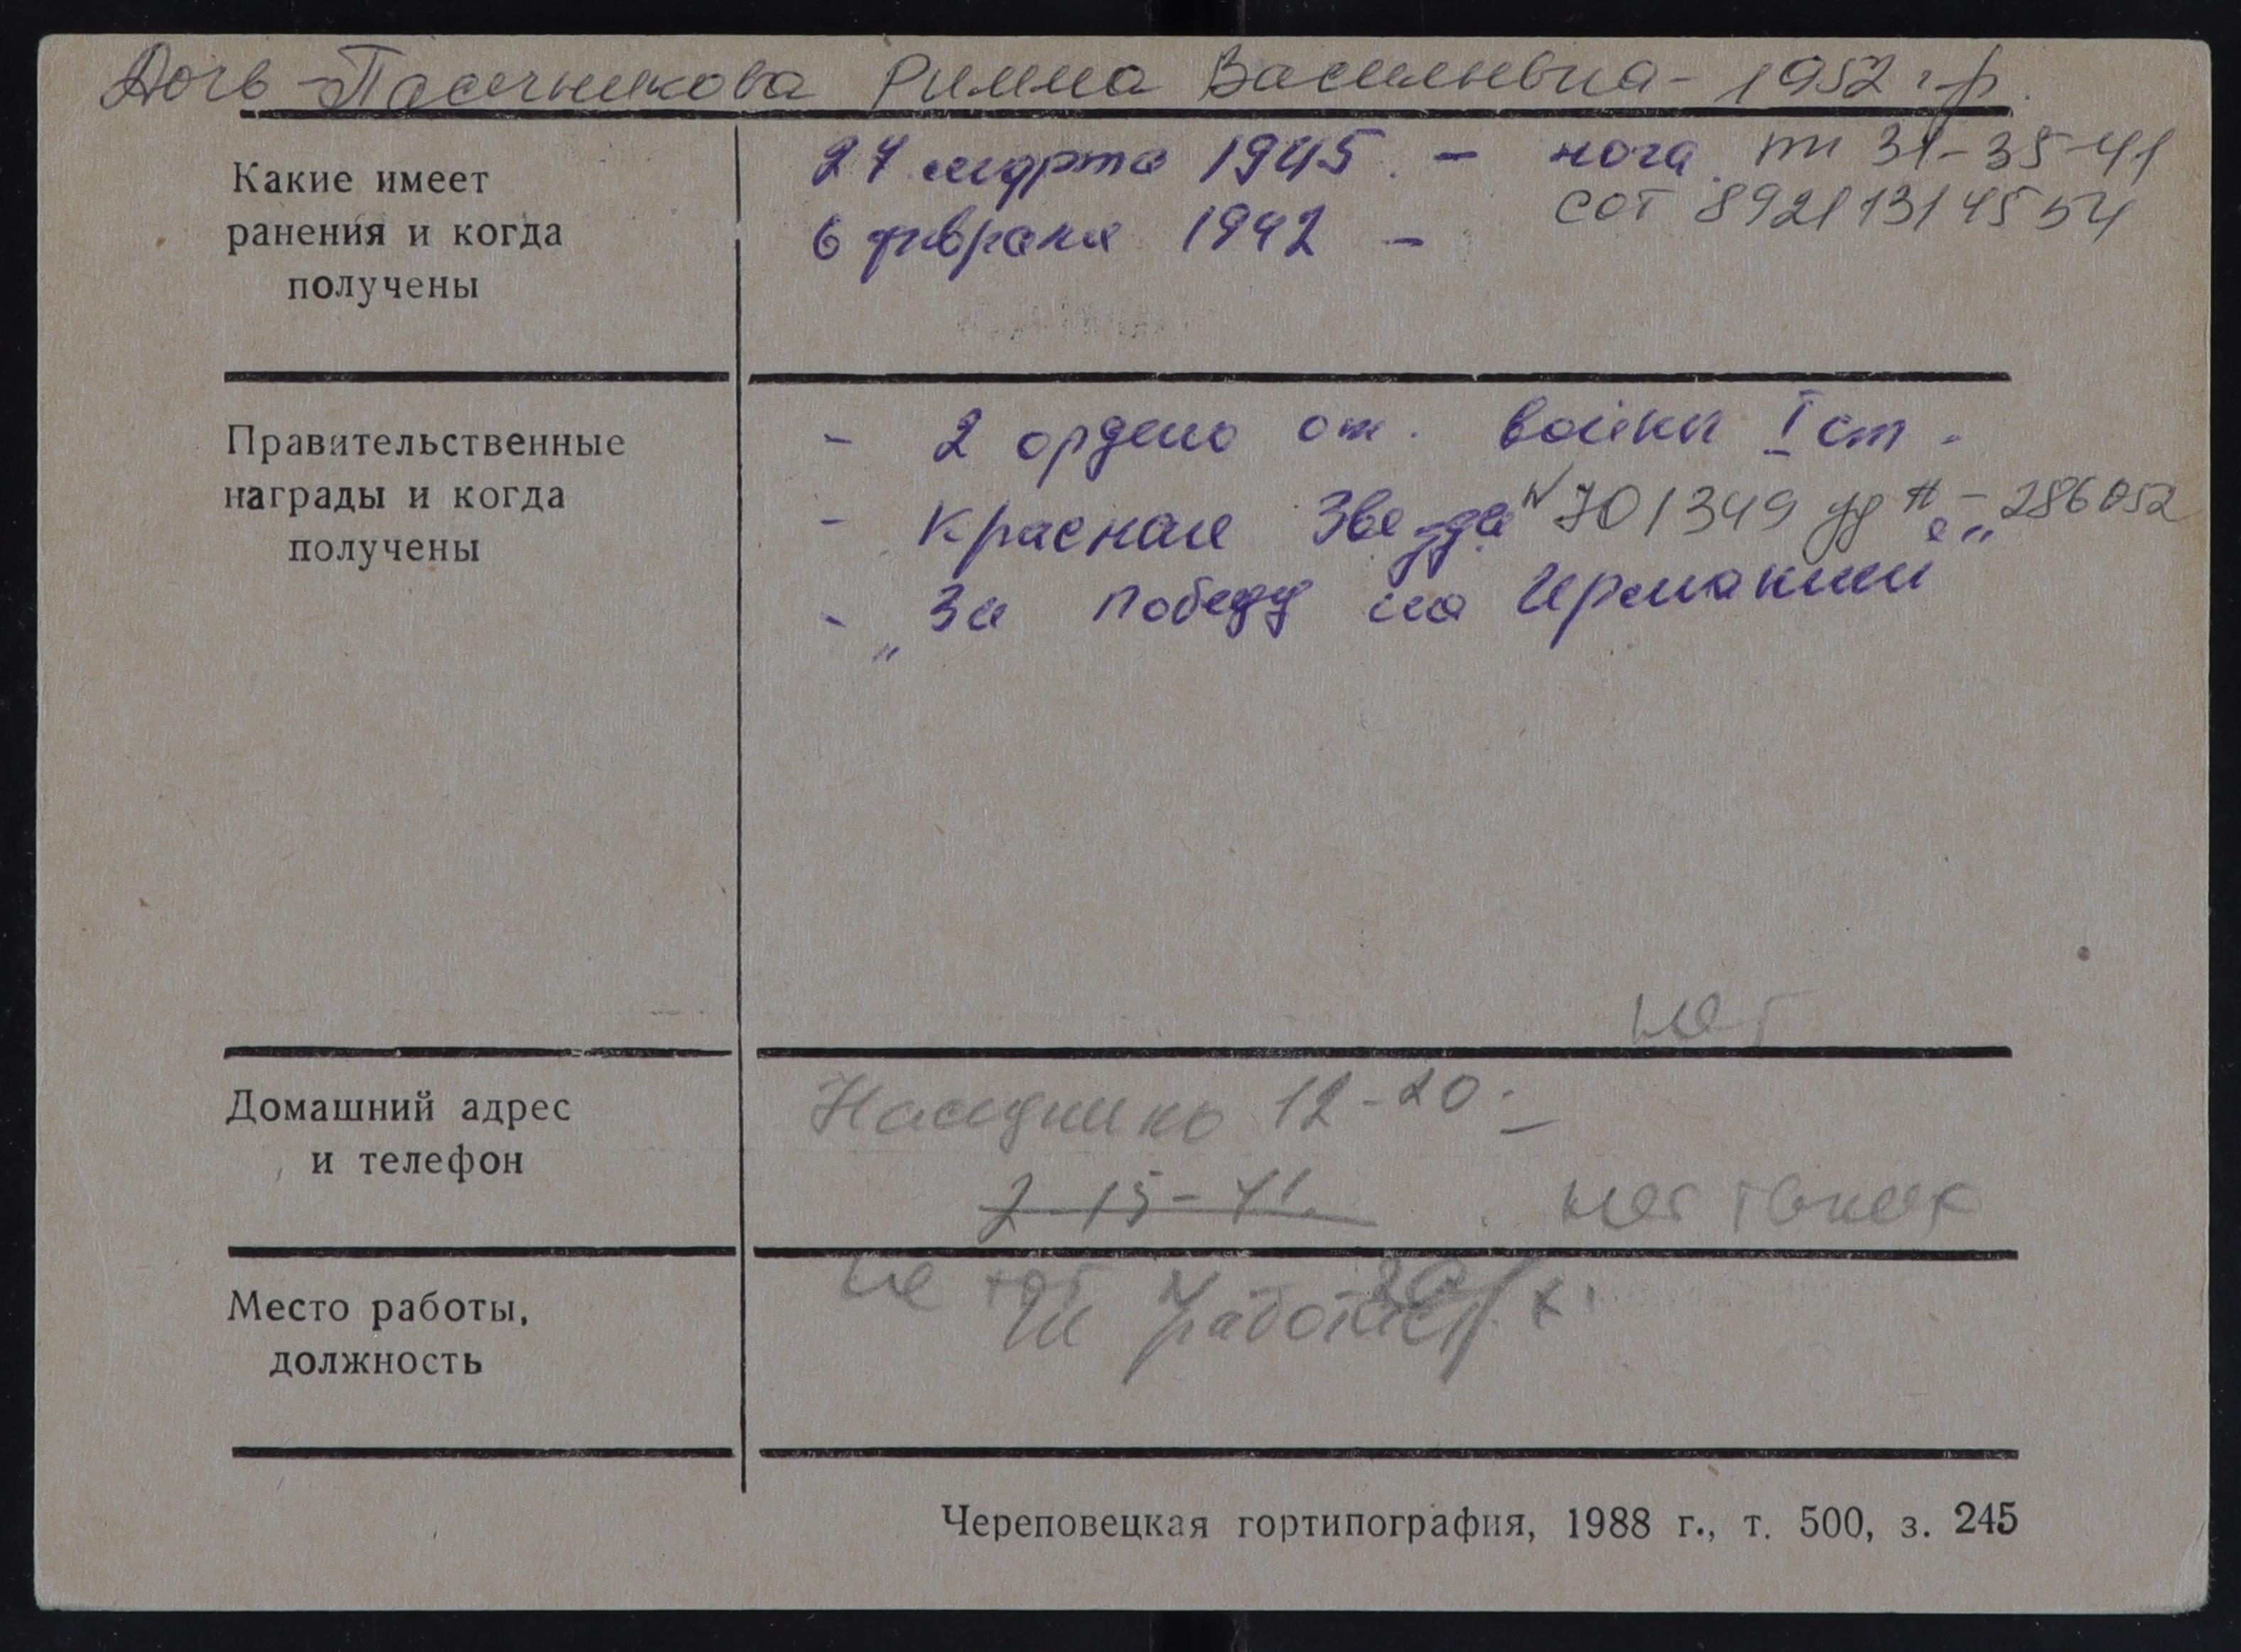 Дочь - Пасечникова Римма Васильевна - 1952 г.р.
Какие имеет
ранения и когда
получены
27 марта 1945. - нога. тл 31-35-41
6 февраля 1942 -
сот 89211314554
Правительственные
награды и когда
получены
- 2 ордена от. войны I ст.
- Красная Звезда N 701349 уд - 286052
- "За победу над Германией"
нет
Домашний адрес
и телефон
12-20.
2-15-41.
нет таких
Место работы,
должность
не тот
Не работает
Череповецкая гортипография, 1988 г., т. 500, з. 245